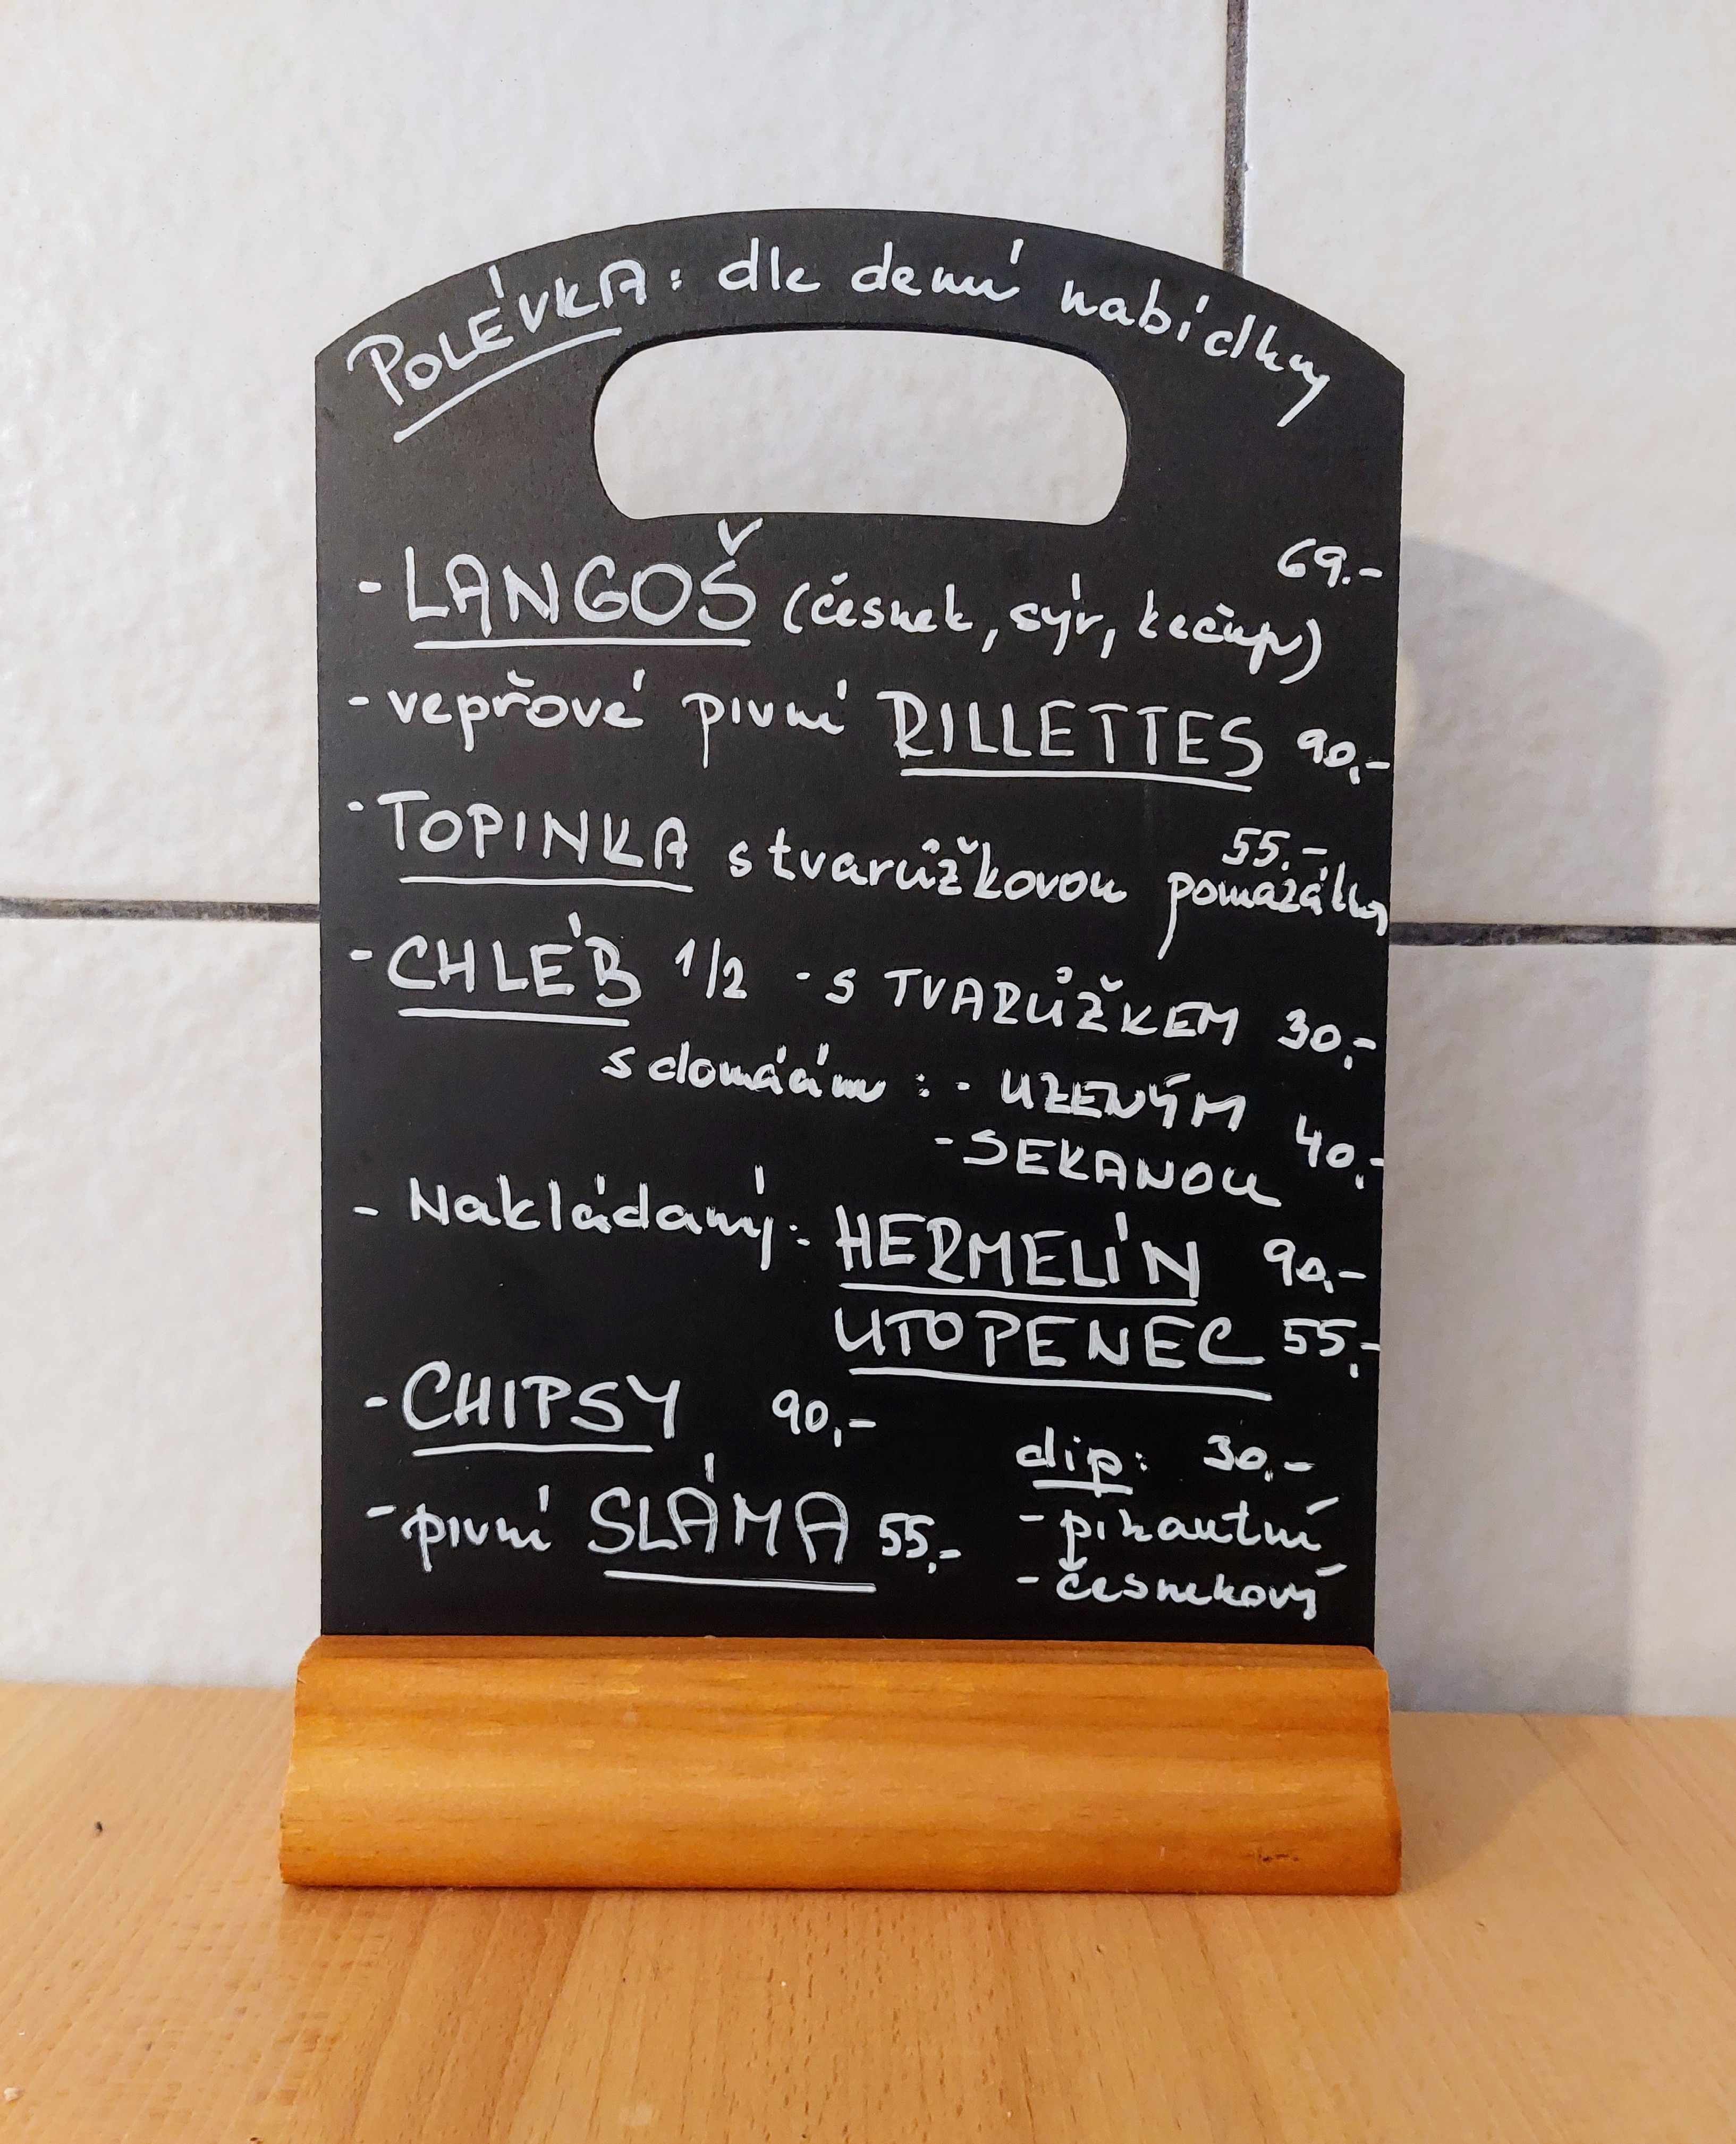 POLÉVKA: dle denní nabídky
69.-
- LANGOŠ (česnek, sýr, kečup)
- vepřové pivní RILLETTES 90,-
55.-
- TOPINKA s tvarůžkovou pomazánkou
- CHLÉB 1/2 - S TVARŮŽKEM 30,-
s domácím : - UZENÝM
- SEKANOU 40,-
- Nakládaný: HERMELÍN 90,-
UTOPENEC 55,-
- CHIPSY 90,-
dip: 30,-
- pivní SLÁMA 55,- - pikantní
- česnekový